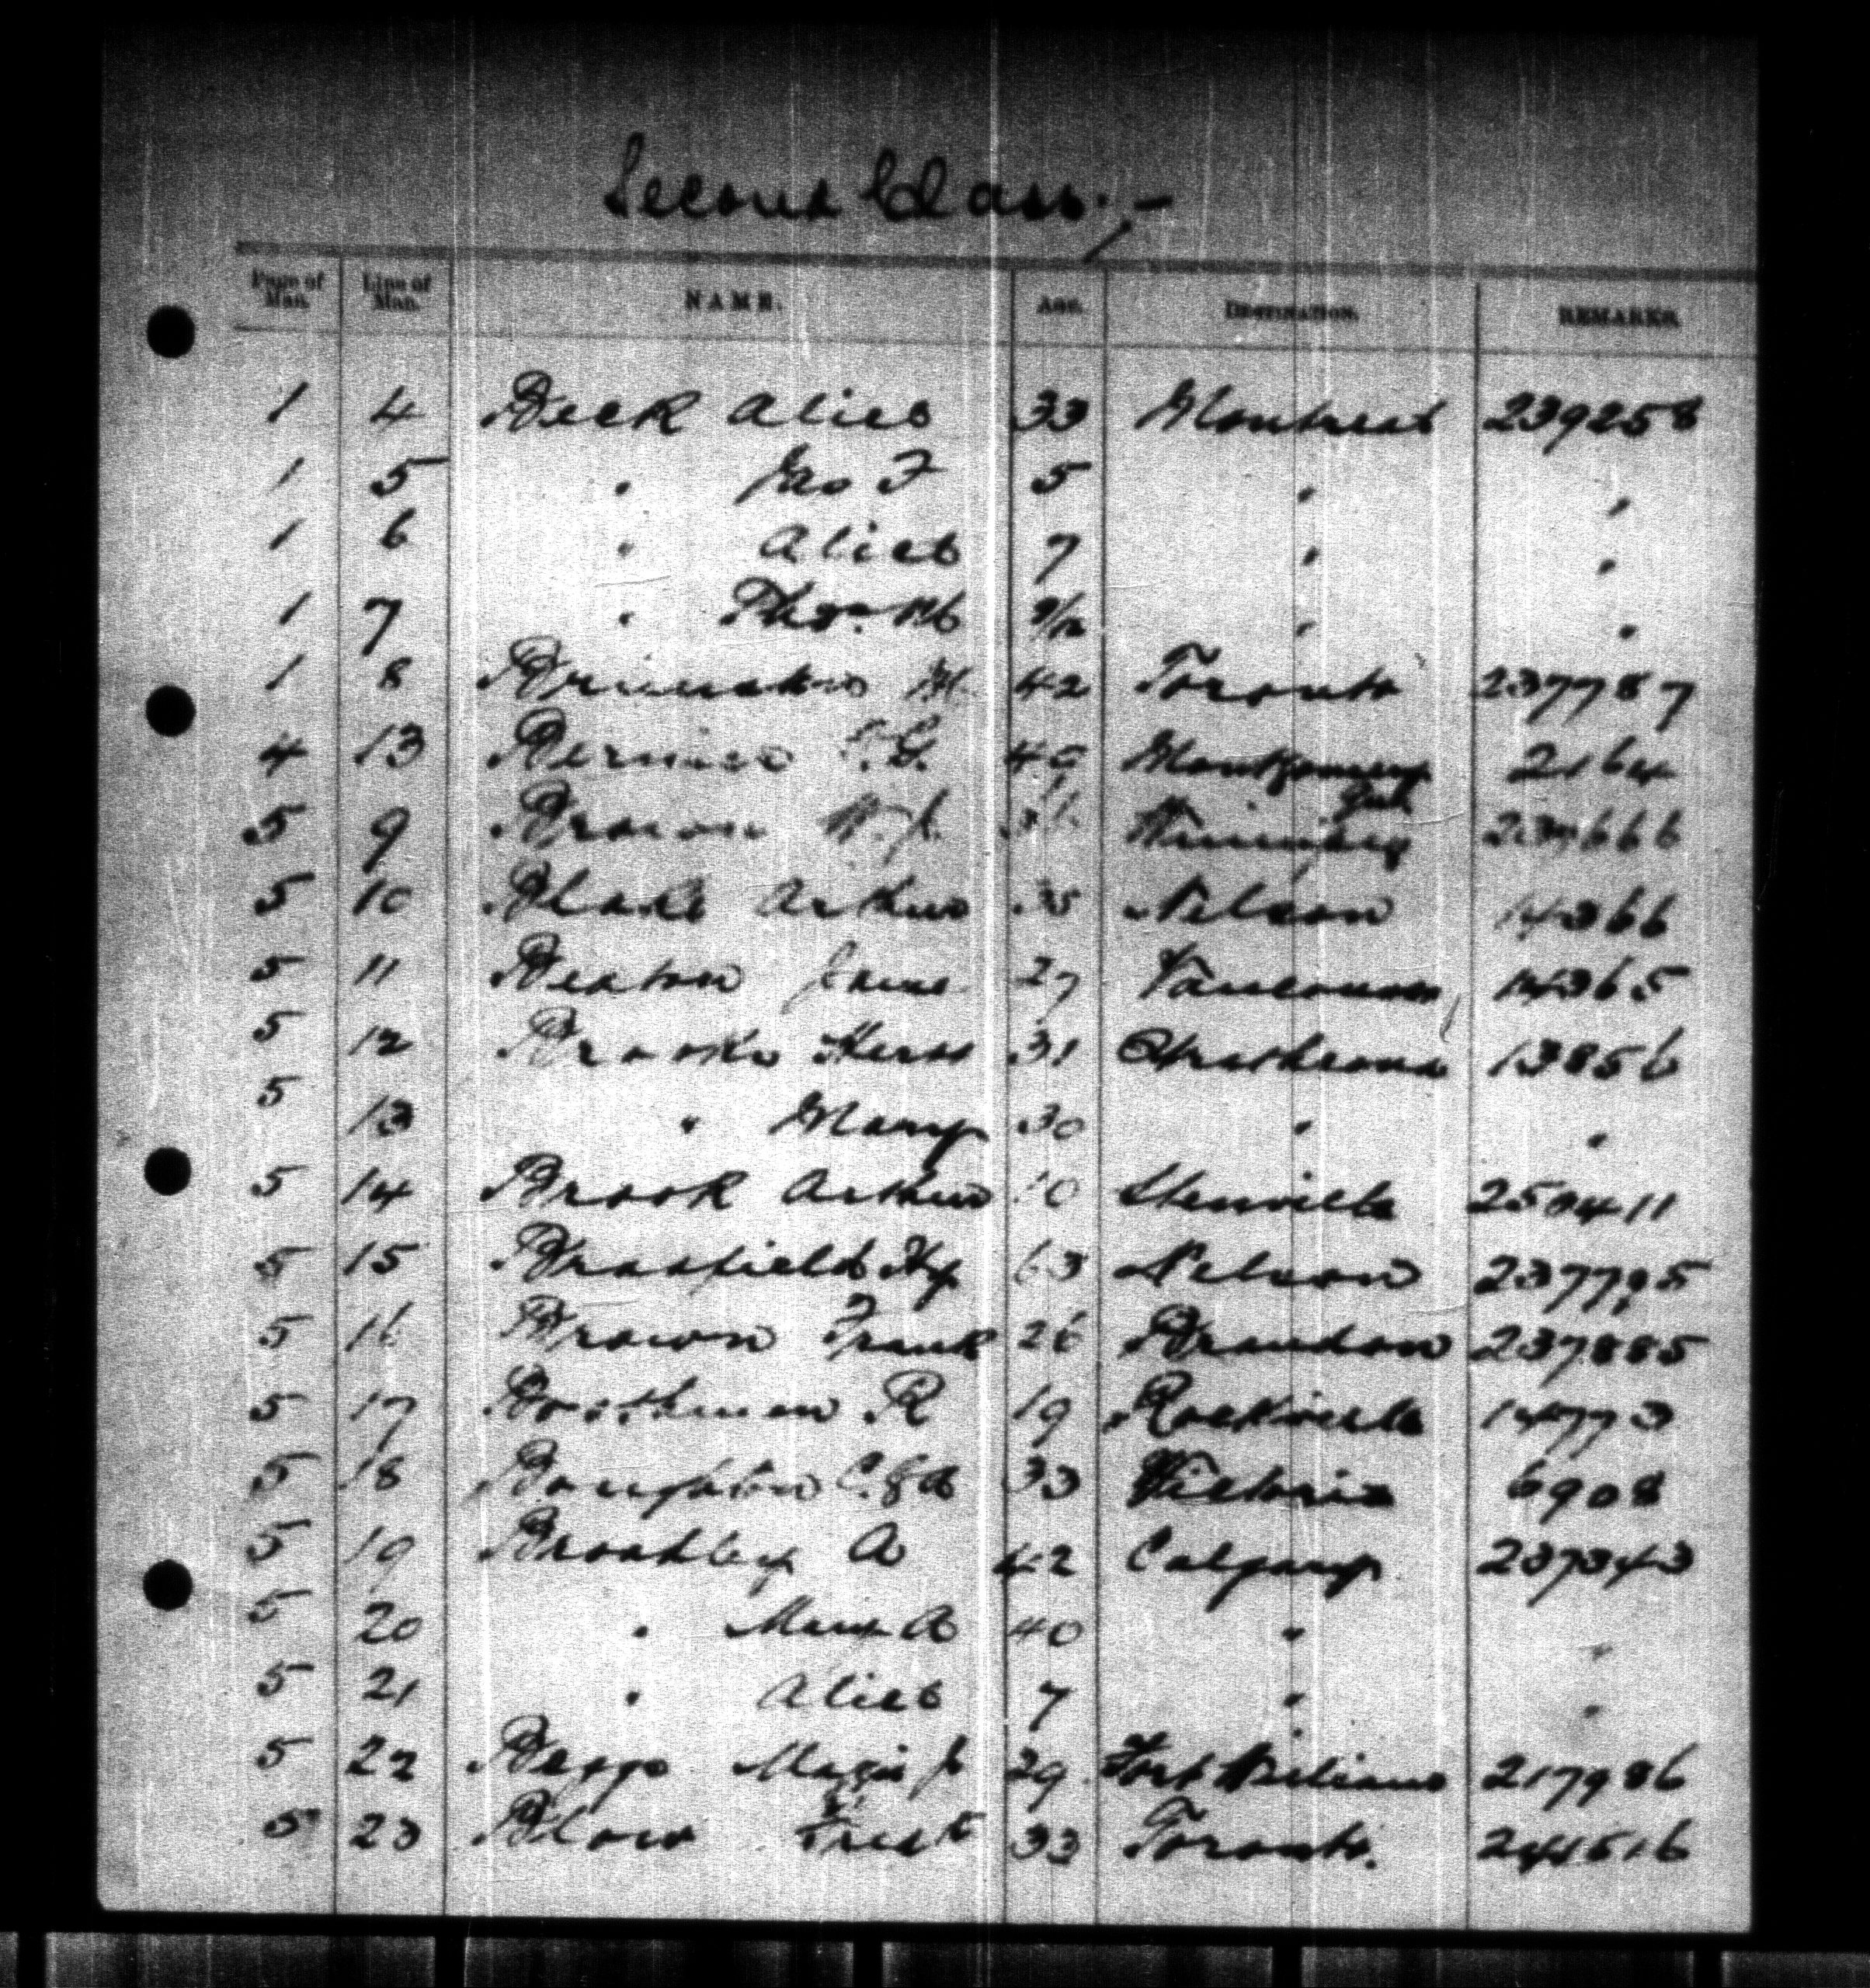 Second Class.
Page of Man. Line of Man. NAME. AGE. DESTINATION. REMARKS.
1 4 Beck Alice 33 Montreal 239258
1 5 " Jas F 5 " "
1 6 " Alice 7 " "
1 7 " Thos. 9/12 " "
1 8 M. 42 Toronto 237787
4 13 Bernier 2164
5 9 Brown W. J. Winnipeg
Que
5 10 Blake Arthur 35 Nelson 14366
5 11 27 Vancouver 14365
5 12 Brooks 31 Strathcona 13856
5 13 " Mary 30 " "
5 14 Brook Arthur 10
5 15 Hy 63 Nelson 237795
5 16 Brown Frank 26 Brandon 237885
5 17 R 19 14773
5 18 Boughton 33 Victoria 6908
5 19 A 42 Calgary 237343
5 20 " Mary A 40 " "
5 21 " Alice 7 " "
5 22 29 Fort William 217986
5 23 Blow 33 Toronto. 241516